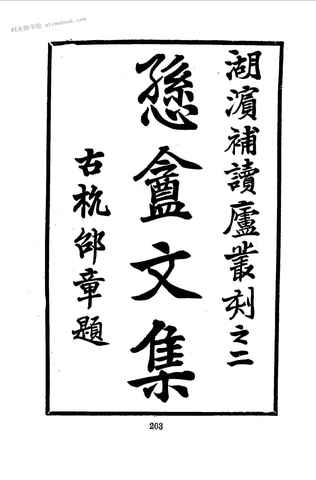 湖濱補讀廬叢刻之二
愻盦文集
古杭邵章題
203